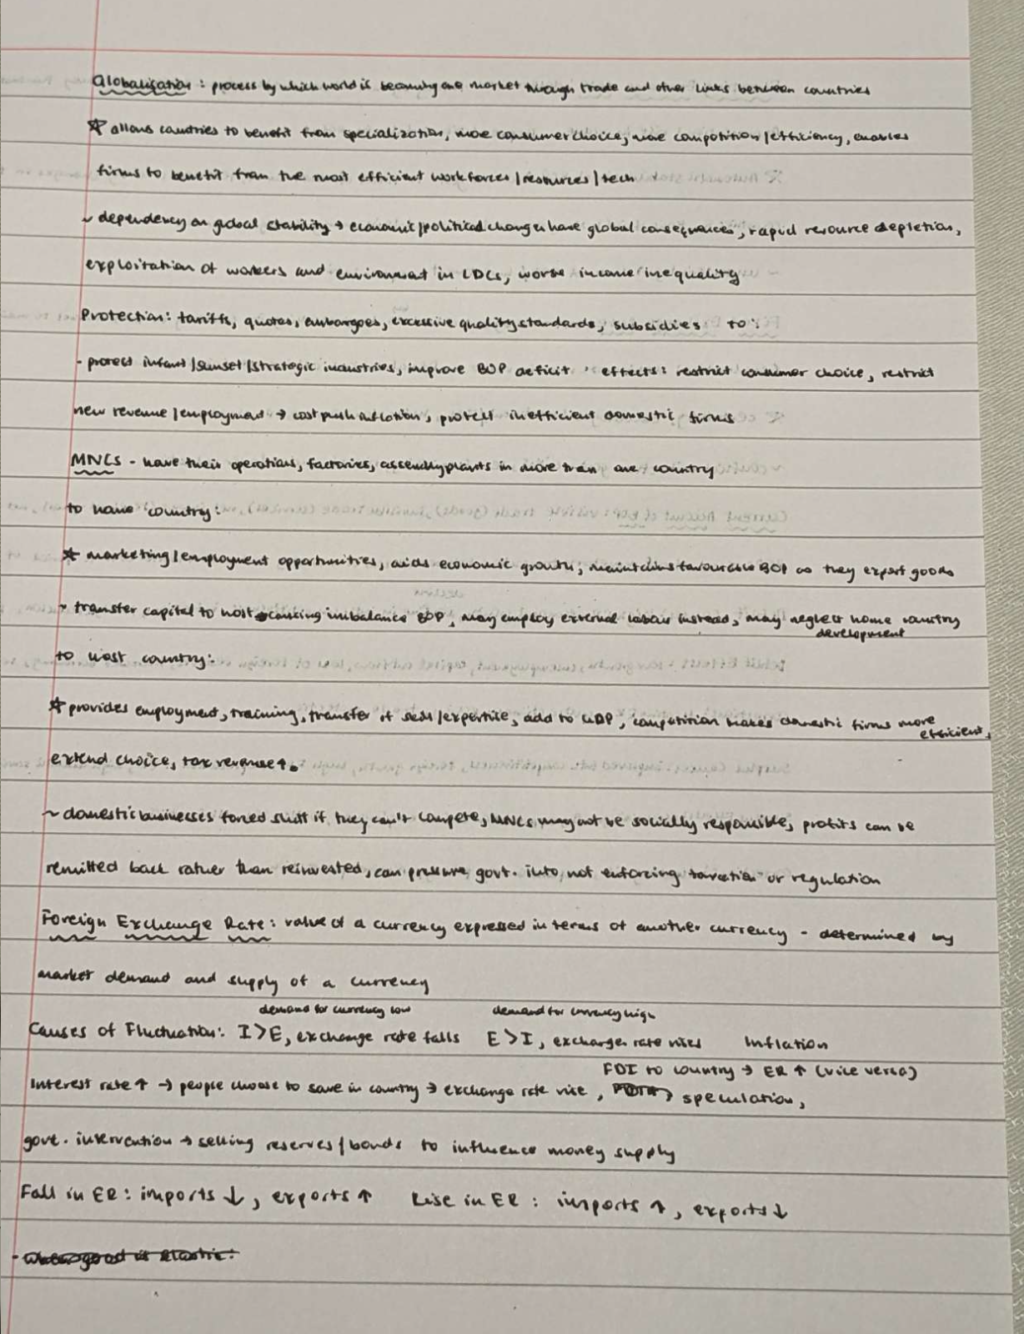 Globalisation: process by which world is becoming one market through trade and other links between countries
☆ allows countries to benefit from specialization, more consumer choice, more competition/efficiency, enables
firms to benefit from the most efficient workforces/resources/tech
~ dependency on global stability → economic/political changes have global consequences, rapid resource depletion,
exploitation of workers and environment in LDCs, worse income inequality
Protection: tariffs, quotas, embargoes, excessive quality standards, subsidies to:
- protect infant/sunset/strategic industries, improve BOP deficit effects: restrict consumer choice, restrict
new revenue/employment → cost push inflation, protect inefficient domestic firms
MNCs - have their operations, factories, assembly plants in more than one country
to home country:
☆ marketing/employment opportunities, aids economic growth, maintains favourable BOP as they export goods
~ transfer capital to host causing imbalance BOP, may employ external labour instead, may neglect home country
development
to host country:
☆ provides employment, training, transfer of skills/expertise, add to GDP, competition makes domestic firms more
efficient,
extend choice, tax revenue ↑.
~ domestic businesses forced shut if they can't compete, MNCs may not be socially responsible, profits can be
remitted back rather than reinvested, can pressure govt. into not enforcing taxation or regulation
Foreign Exchange Rate: value of a currency expressed in terms of another currency - determined by
market demand and supply of a currency
demand for currency low demand for currency high
Causes of Fluctuation: I > E, exchange rate falls E > I, exchange rate rises Inflation
FDI to country → ER ↑ (vice versa)
Interest rate ↑ → people choose to save in country → exchange rate rise, speculation,
govt. intervention → selling reserves/bonds to influence money supply
Fall in ER: imports ↓, exports ↑ Rise in ER: imports ↑, exports ↓